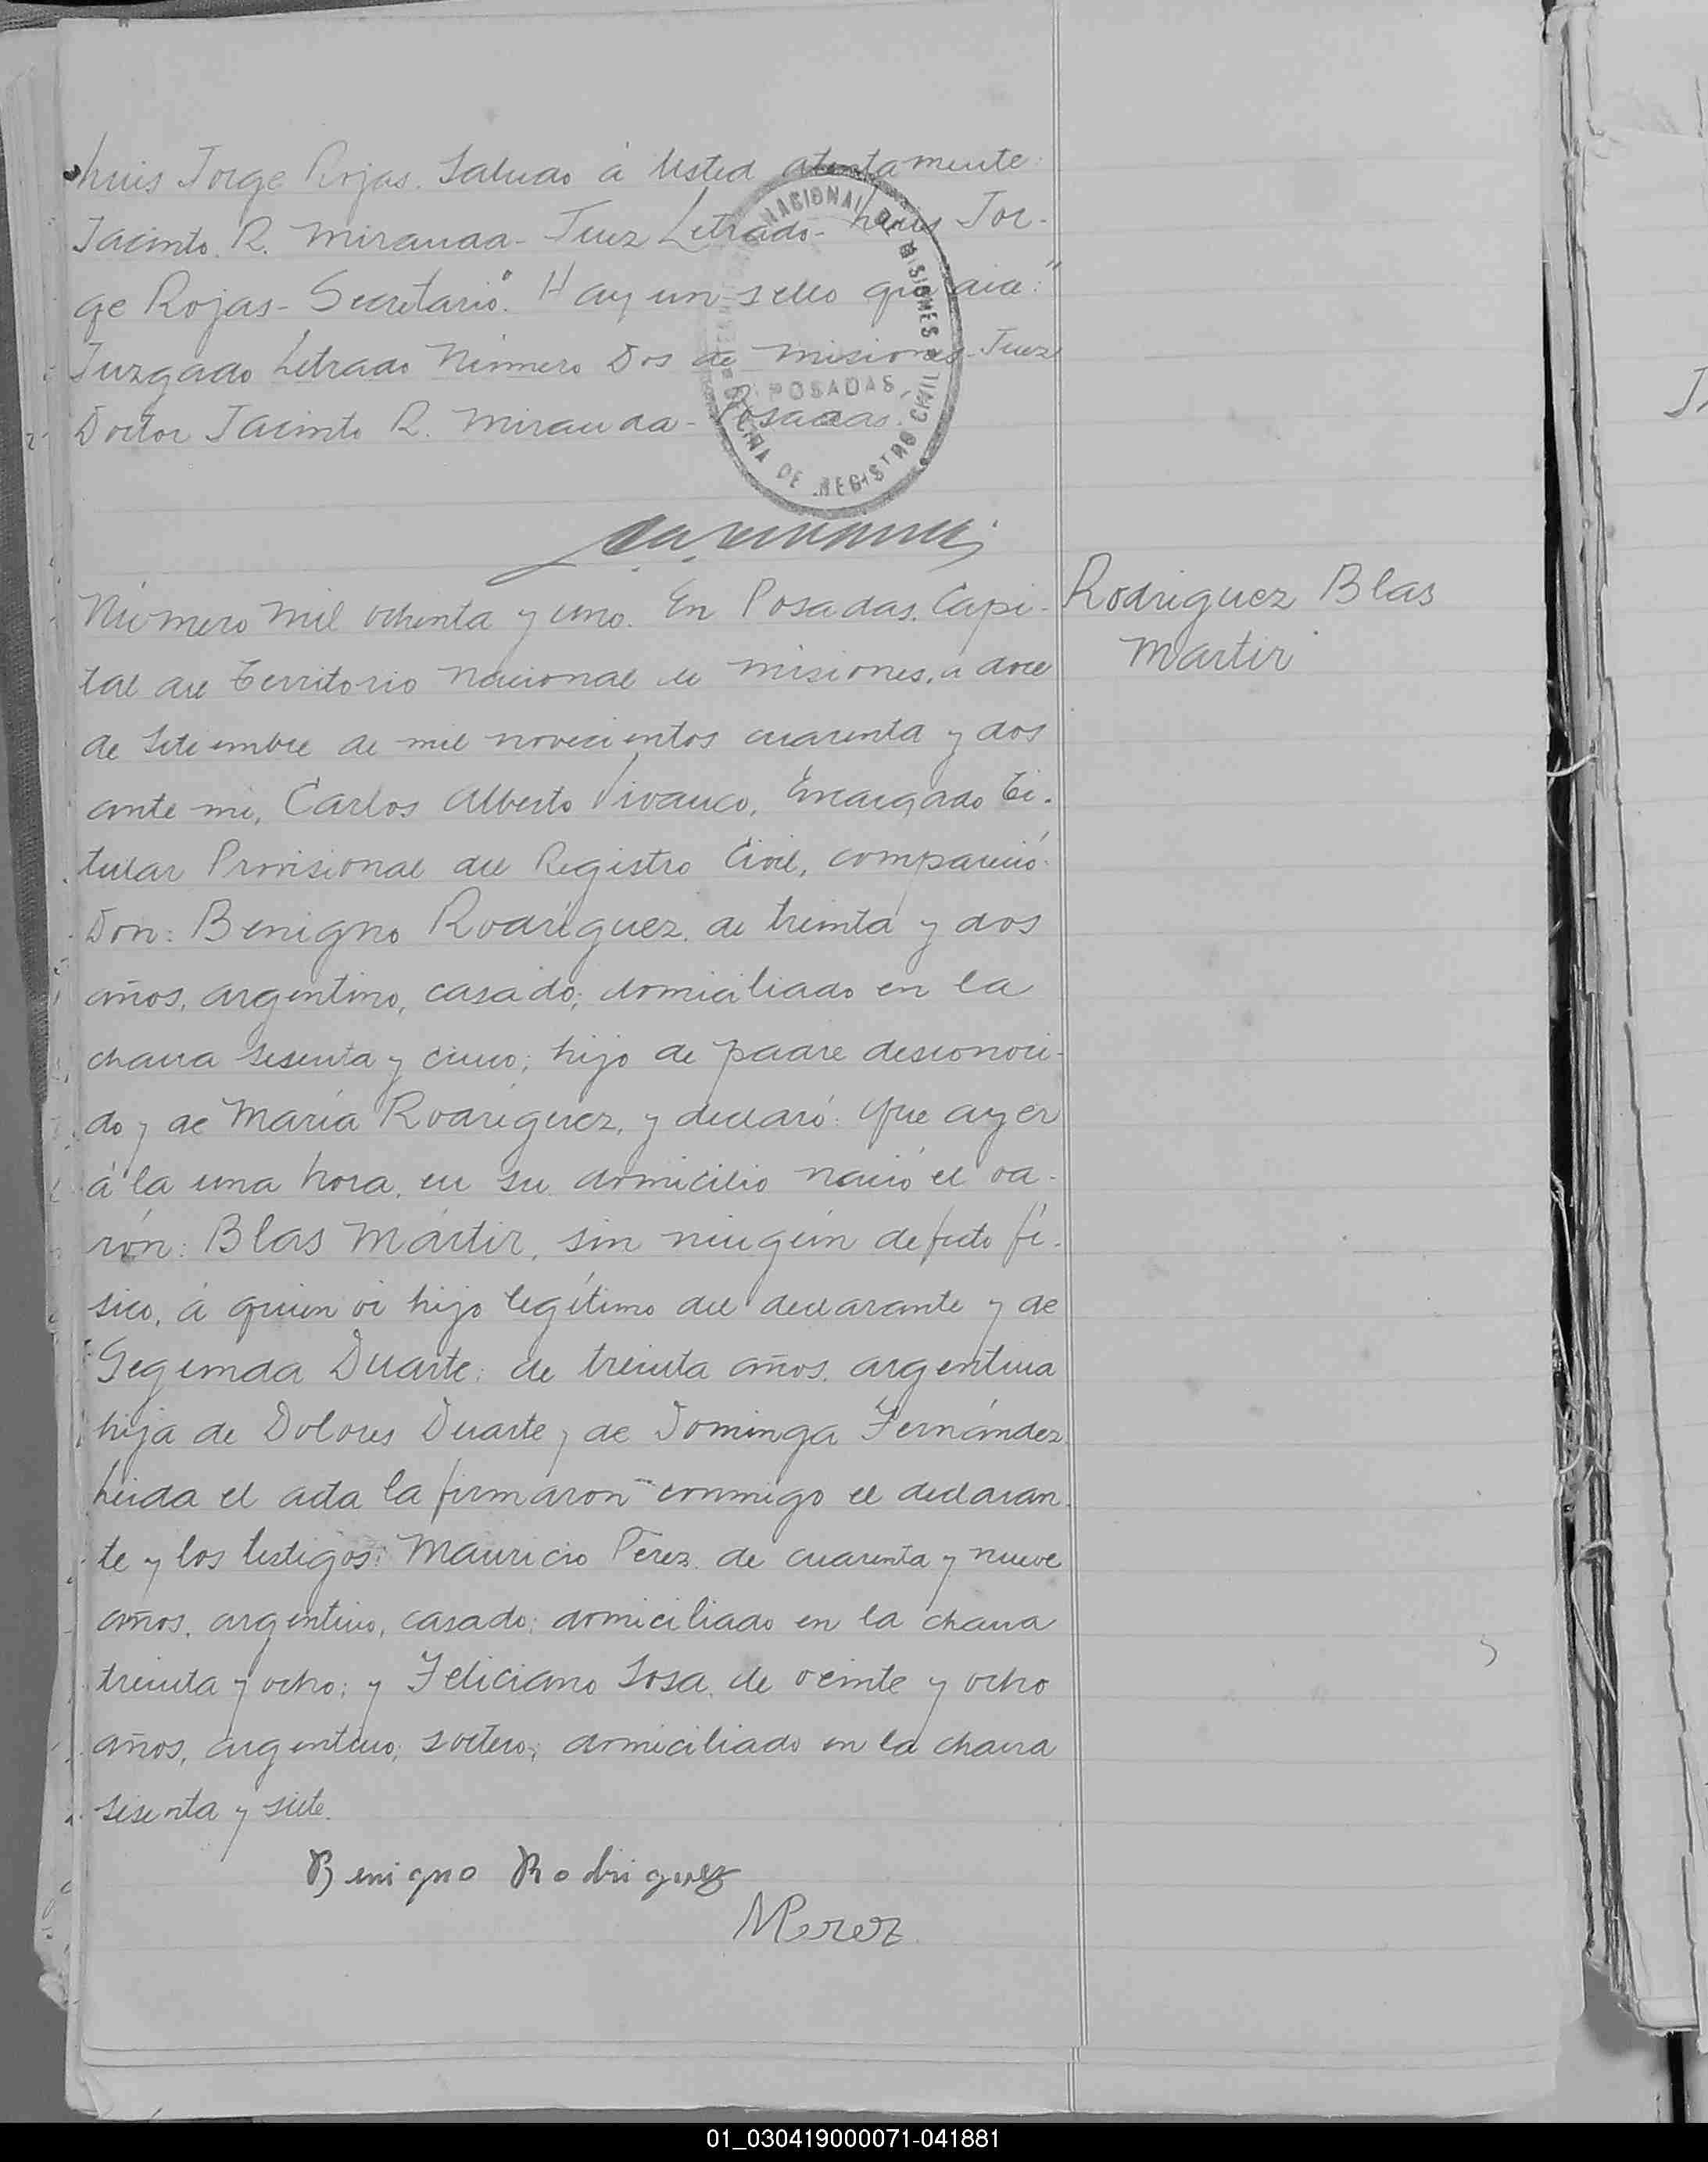 Luis Jorge Rojas. Saludo á Usted atentamente:
Jacinto R. Miranda - Juez Letrado - Luis Jor-
ge Rojas - Secretario". Hay un sello que dice: "
Juzgado Letrado Número Dos de Misiones - Juez
Doctor Jacinto R. Miranda - Posadas.
NACIONAL DE MISIONES
POSADAS
OFICINA DE REGISTRO CIVIL
Número mil ochenta y uno. En Posadas, Capi-
tal del Territorio Nacional de Misiones, a doce
de Setiembre de mil novecientos cuarenta y dos
ante mí, Carlos Alberto Vivanco, Encargado Ti-
tular Provisional del Registro Civil, compareció
Don: Benigno Rodríguez, de treinta y dos
años, argentino, casado; domiciliado en la
chacra sesenta y cinco; hijo de padre desconoci-
do y de María Rodríguez, y declaró: Que ayer
á la una hora, en su domicilio nació el va-
rón: Blas Mártir, sin ningún defecto fí-
sico, á quien vi hijo legítimo del declarante y de
Segunda Duarte; de treinta años, argentina
hija de Dolores Duarte y de Dominga Fernández.
Leida el acta la firmaron conmigo el declaran-
te y los testigos: Mauricio Perez de cuarenta y nueve
años, argentino, casado; domiciliado en la chacra
treinta y ocho; y Feliciano Sosa, de veinte y ocho
años, argentino, soltero; domiciliado en la chacra
sesenta y siete.
Benigno Rodriguez
MPerez
Rodriguez Blas
Martir
01_030419000071-041881